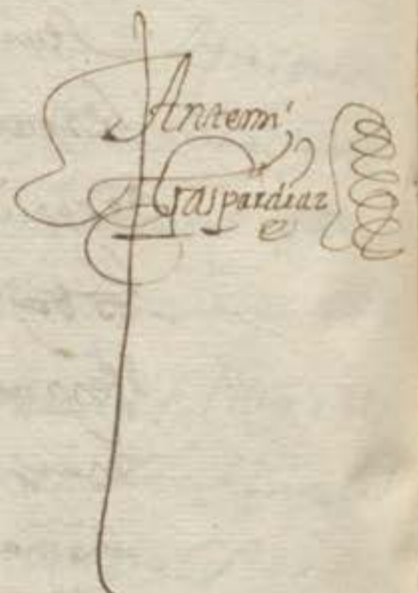 Antemi
Gaspar diaz